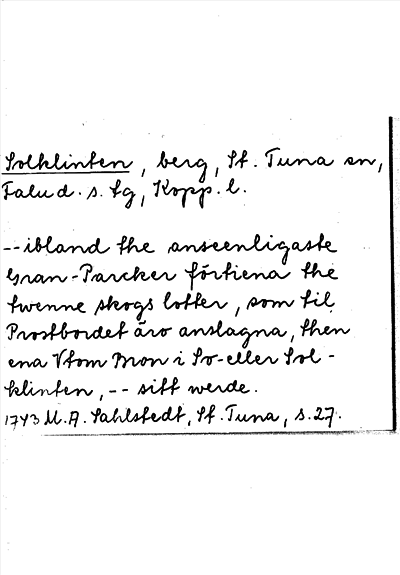 Solklinten, berg, St. Tuna sn,
Falu d. s. tg, Kopp. l.
--ibland the anseenligaste
Gran-Parcker förtiena the
twenne skogs lotter, som til
Prostbordet äro anslagna, then
ena Vtom Mon i So- eller Sol-
klinten, -- sitt werde.
1743 M. A. Sahlstedt, St. Tuna, s. 27.